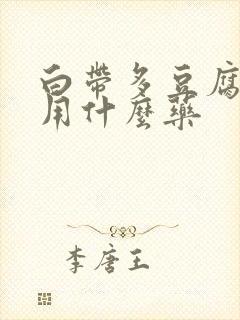 白帶多豆腐
用什麼藥
李唐王